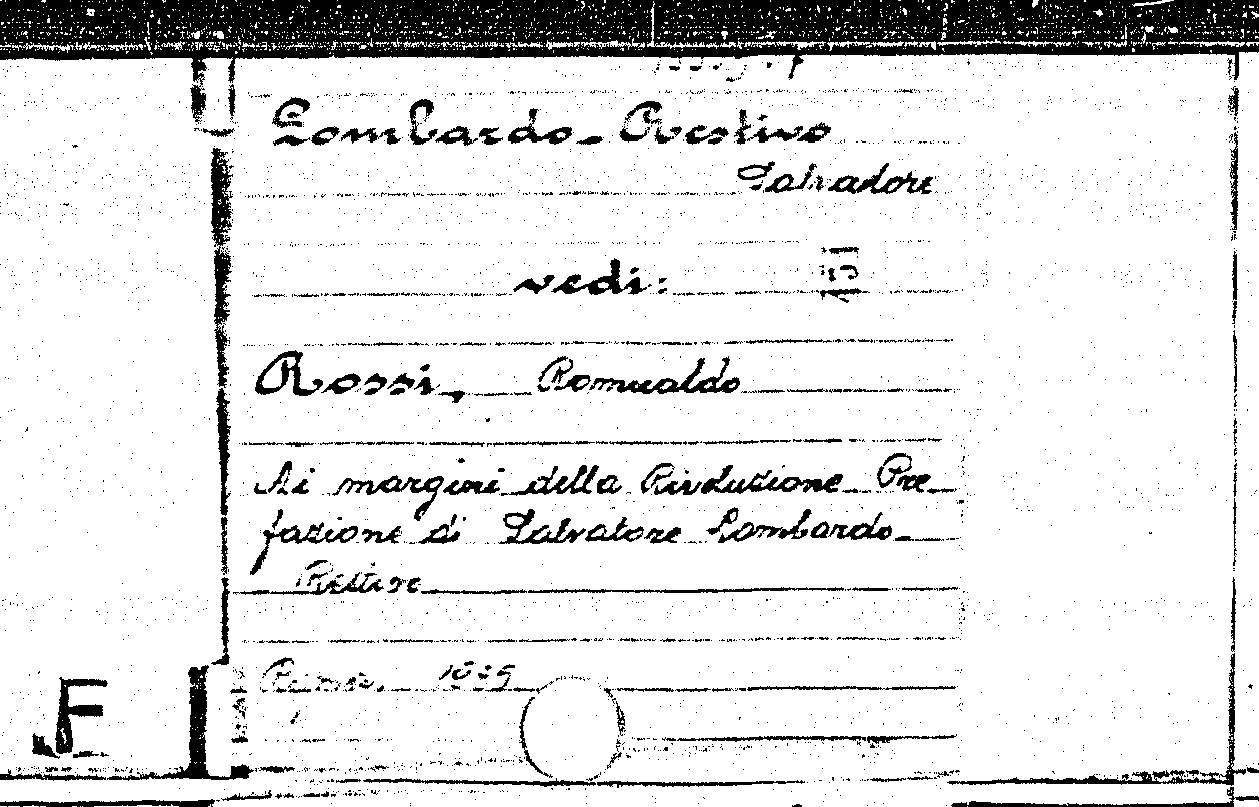 Lombardo-Restivo
Salvadore
vedi:
Rossi, Romualdo
Ai margini della Rivoluzione Pre
fazione di Salvatore Lombardo-
Restivo
F